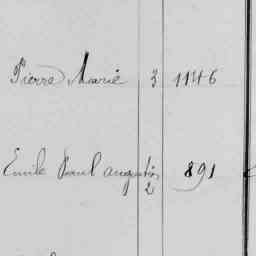 Pierre Marie 3 1146
Emile Paul augustin 2 891